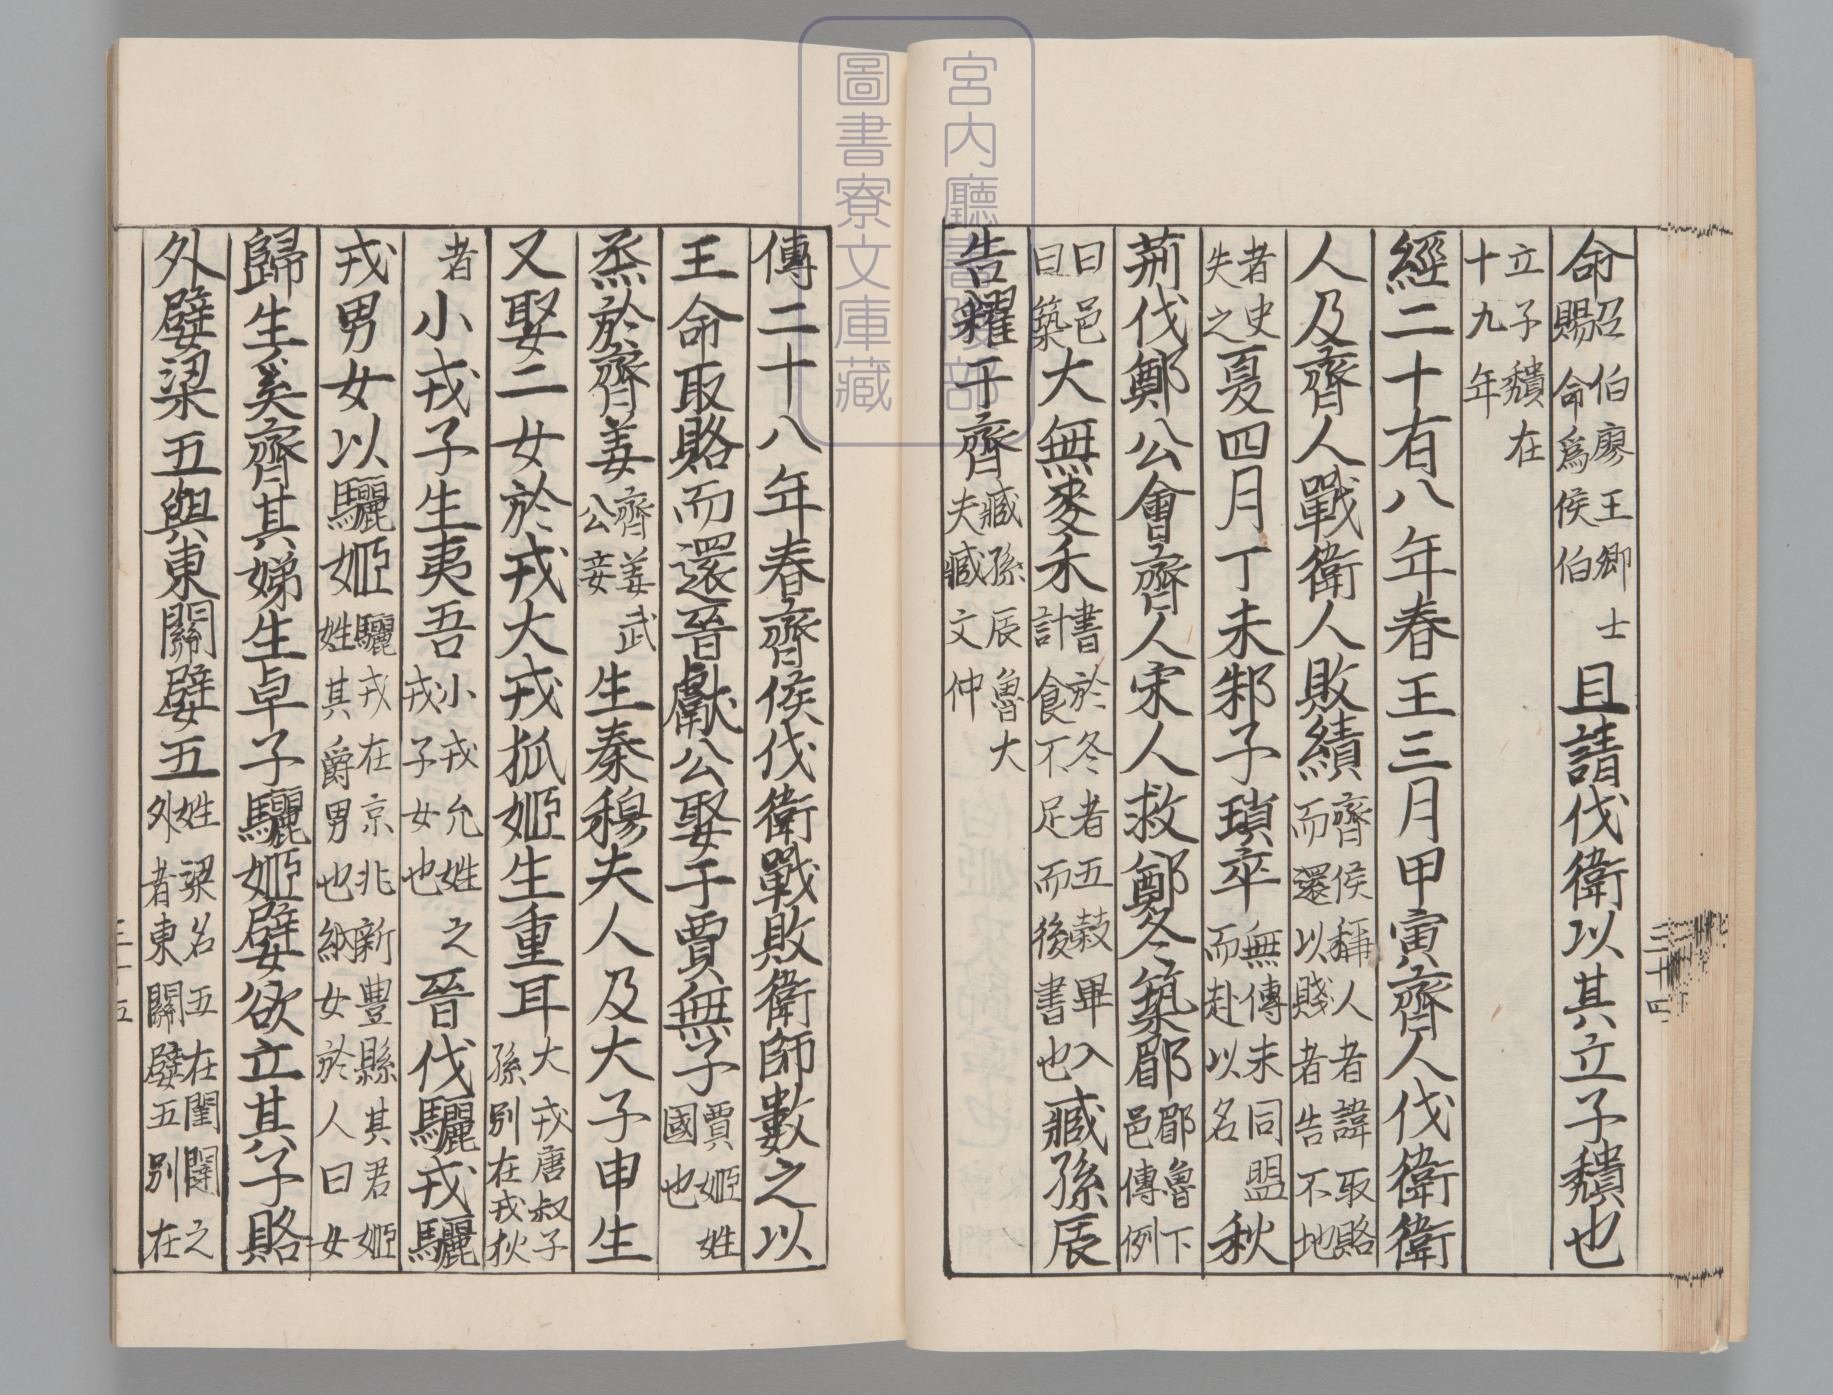 宮内廳書陵部
圖書寮文庫藏
三十四
命召伯廖王卿士賜命爲侯伯且請伐衛以其立子頽也
立子頽在十九年
經二十有八年春王三月甲寅齊人伐衛衛
人及齊人戰衛人敗績齊侯稱人者諱取賂而還以賤者告不地
者史失之夏四月丁未邾子瑣卒無傳未同盟而赴以名秋
荊伐鄭公會齊人宋人救鄭冬築郿郿魯下邑傳例
曰邑曰築大無麥禾書於冬者五穀畢入計食不足而後書也臧孫辰
告糴于齊臧孫辰魯大夫臧文仲
傳二十八年春齊侯伐衛戰敗衛師數之以
王命取賂而還晉獻公娶于賈無子賈姬姓國也
烝於齊姜齊姜武公妾生秦穆夫人及大子申生
又娶二女於戎大戎狐姬生重耳大戎唐叔子孫別在戎狄
者小戎子生夷吾小戎允姓之戎子女也晉伐驪戎驪
戎男女以驪姬驪戎在京兆新豐縣其君姬姓其爵男也納女於人曰女
歸生奚齊其娣生卓子驪姬嬖欲立其子賂
外嬖梁五與東關嬖五姓梁名五在閨闥之外者東關嬖五別在
三十五